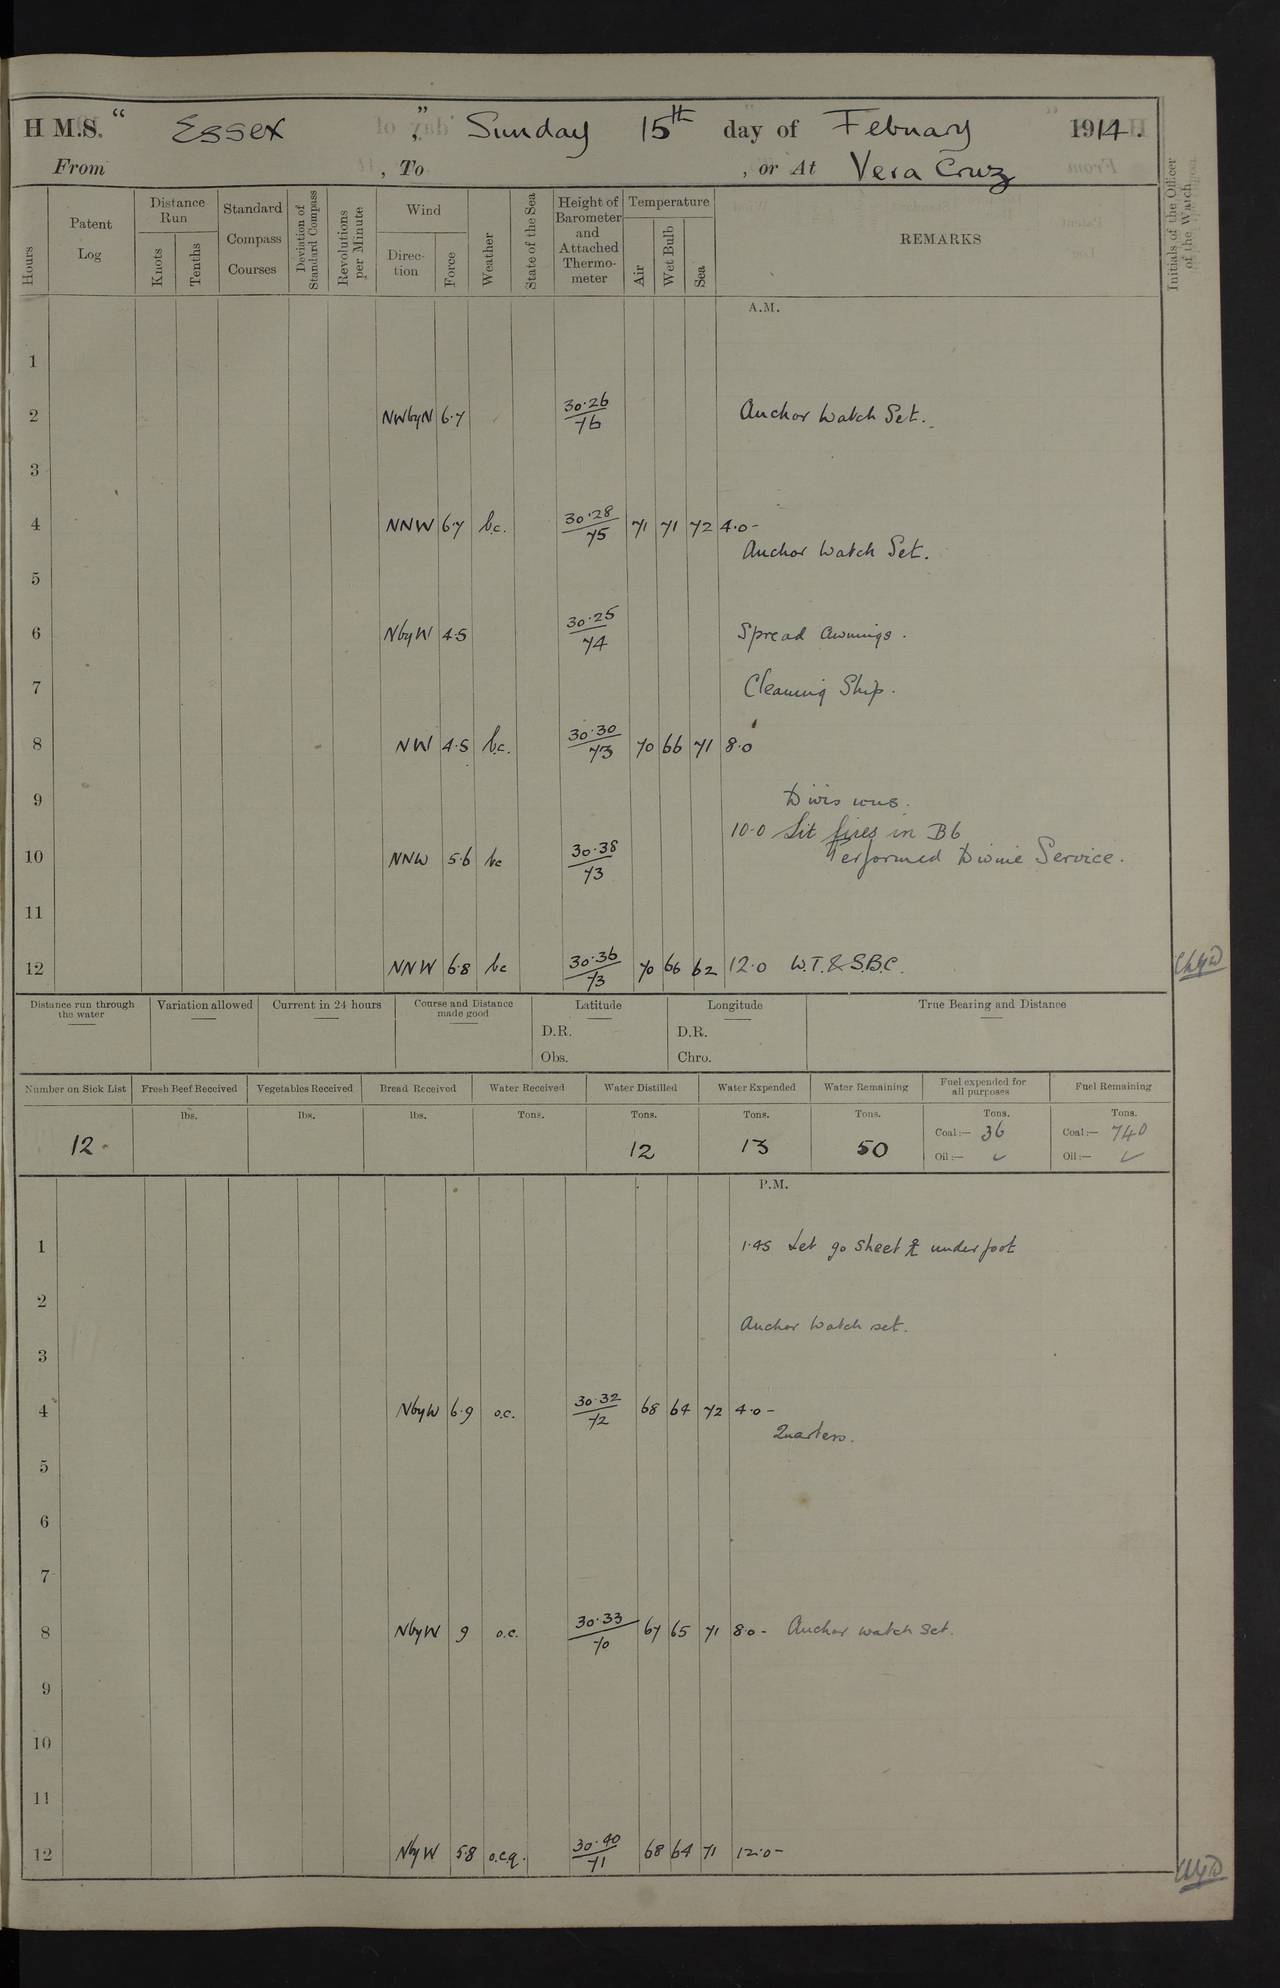 H.M.S. “ Essex ”, Sunday 15th day of Febuary 1914.
From , To , or At Vera Cruz
Hours
Patent Log
Distance Run
Knots
Tenths
Standard Compass Courses
Deviation of Standard Compass
Revolutions per Minute
Wind
Direction
Force
Weather
State of the Sea
Height of Barometer and Attached Thermometer
Temperature
Air
Wet Bulb
Sea
REMARKS
Initials of the Officer of the Watch
A.M.
1
2 NWbyN 6·7 30·26/76 Anchor Watch Set.
3
4 NNW 6·7 b.c. 30·28/75 71 71 72 4·0-
Anchor Watch Set.
5
6 NbyW 4·5 30·25/74 Spread Awnings.
7 Cleaning Ship.
8 NW 4·5 b.c. 30·30/73 70 66 71 8·0
9 Divisions.
10·0 Lit fires in B6
10 NNW 5·6 bc 30·38/73 Performed Divine Service.
11
12 NNW 6·8 bc 30·36/73 70 66 62 12·0 W.T. & S.B.C.
Distance run through the water
Variation allowed
Current in 24 hours
Course and Distance made good
Latitude
D.R.
Obs.
Longitude
D.R.
Chro.
True Bearing and Distance
Number on Sick List
Fresh Beef Received
Vegetables Received
Bread Received
Water Received
Water Distilled
Water Expended
Water Remaining
Fuel expended for all purposes
Fuel Remaining
lbs. lbs. lbs. Tons. Tons. Tons. Tons. Tons. Tons.
12 12 13 50 Coal:— 36 Coal:— 740
Oil:— ✓ Oil:— ✓
P.M.
1 1·45 Let go sheet ⚓ under foot
2
Anchor Watch set.
3
4 NbyW 6·9 o.c. 30·32/72 68 64 72 4·0-
Quarters.
5
6
7
8 NbyW 9 o.c. 30·33/70 67 65 71 8·0- Anchor watch set.
9
10
11
12 NbyW 5·8 o.c.q. 30·40/71 68 64 71 12·0-